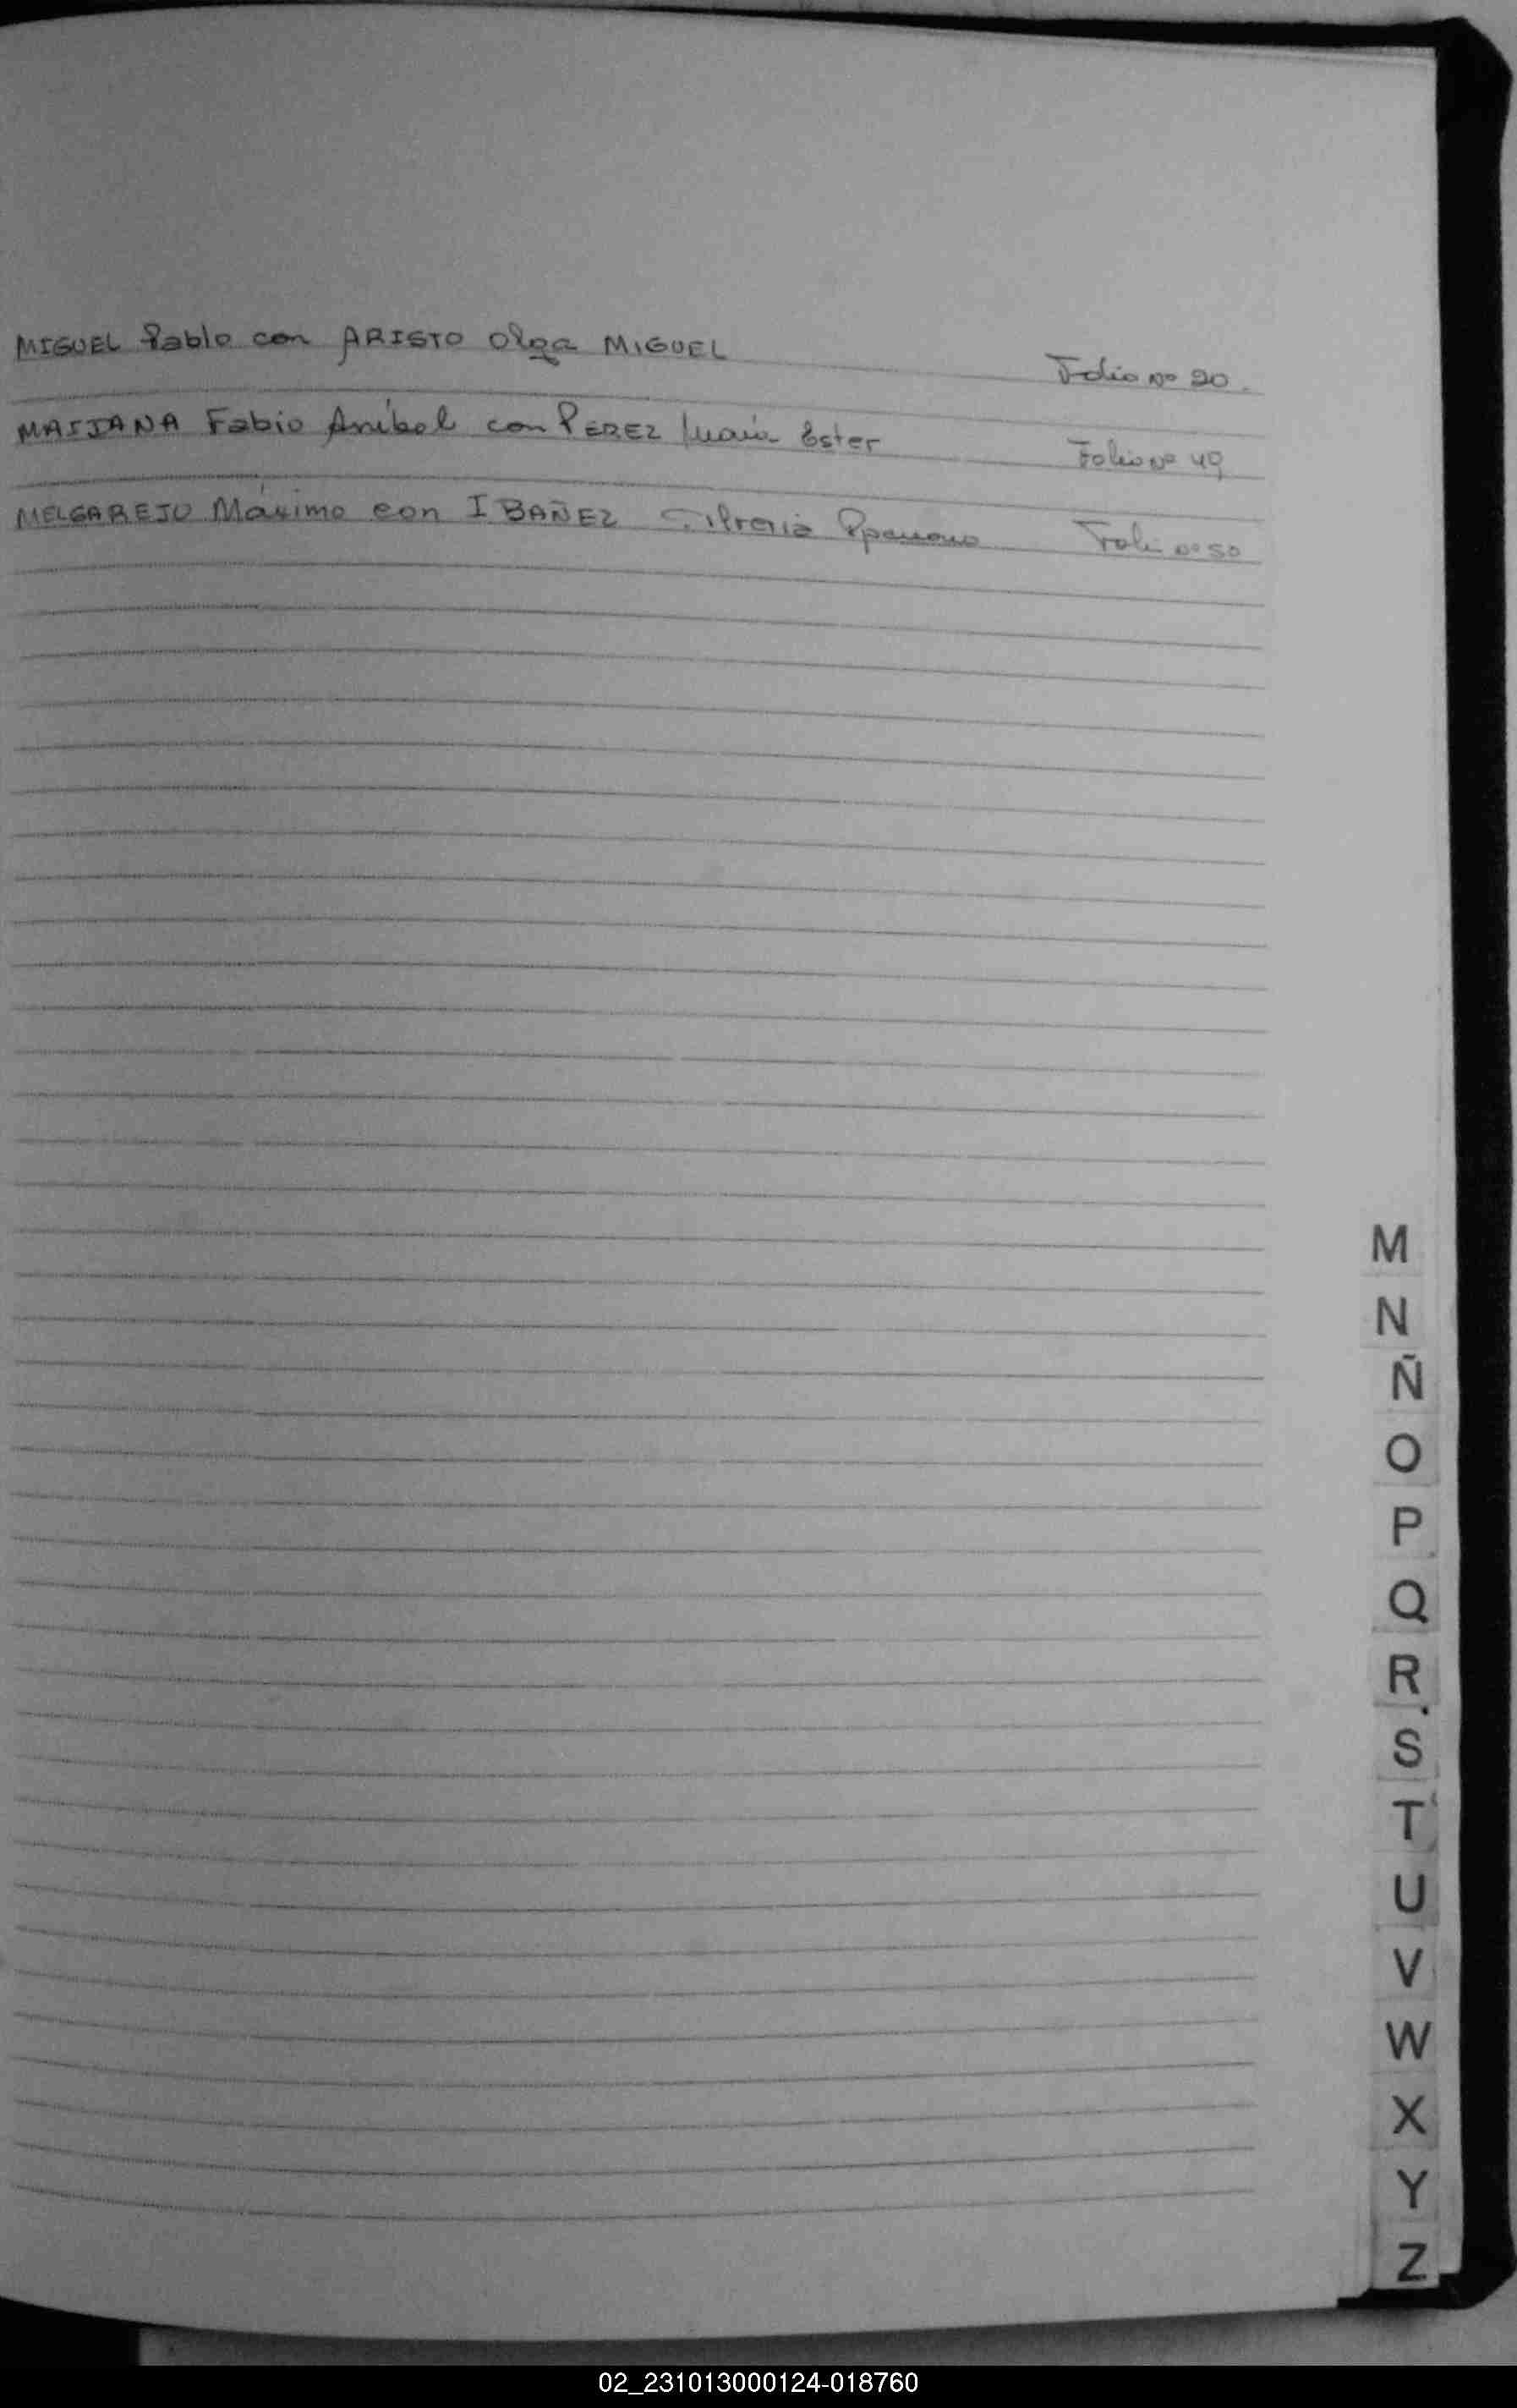 MIGUEL Pablo con ARISTO Olga MIGUEL Folio Nº 20.
MAIJANA Fabio Anibal con PEREZ María Ester Folio Nº 49
MELGAREJO Máximo con IBAÑEZ Silveria Folio Nº 50
M
N
Ñ
O
P
Q
R
S
T
U
V
W
X
Y
Z
02_231013000124-018760